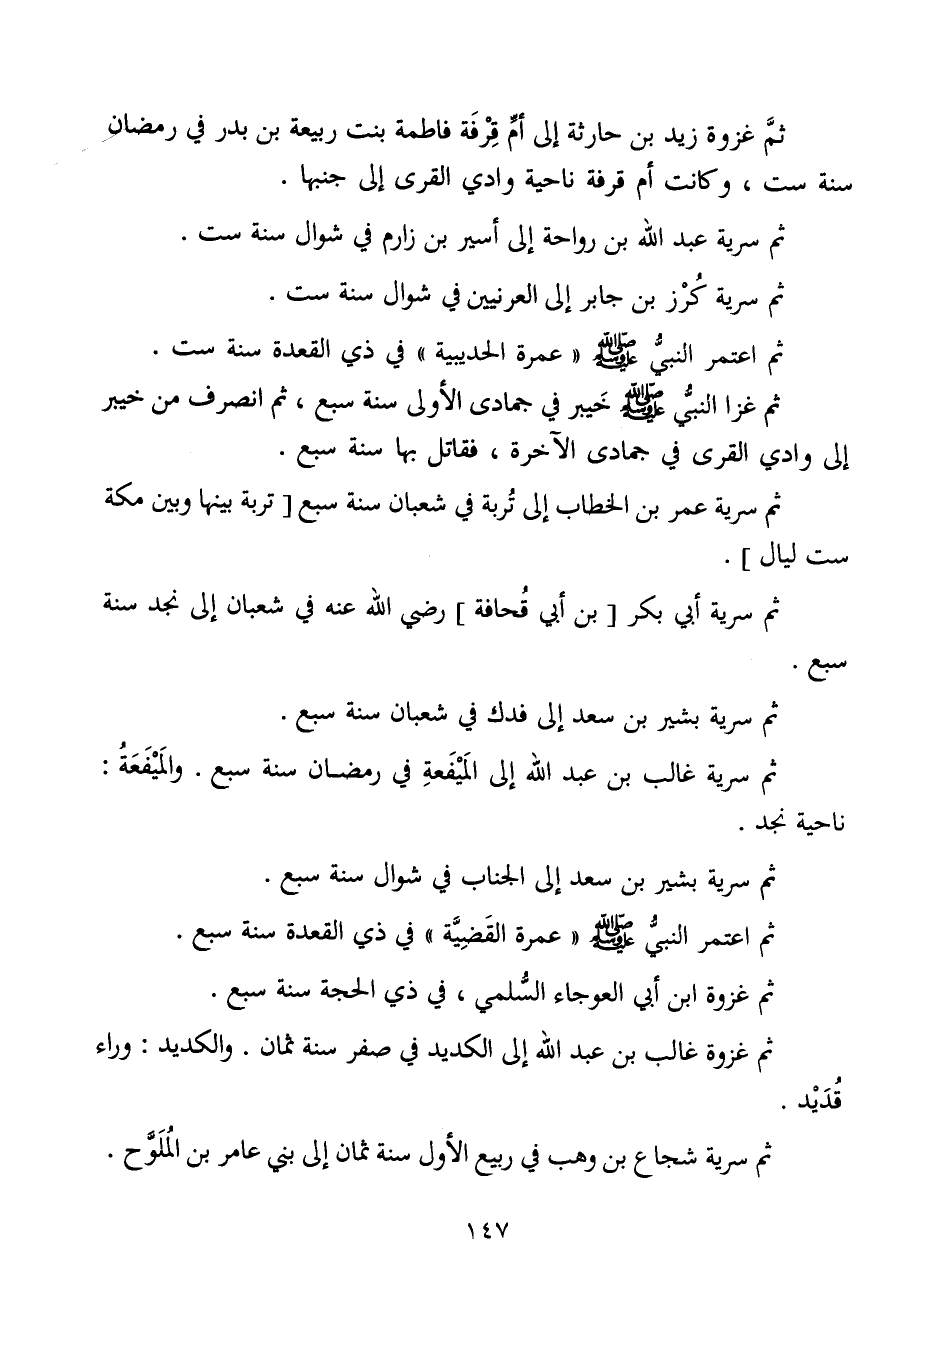 ثمَّ غزوة زيد بن حارثة إلى أمِّ قِرْفَة فاطمة بنت ربيعة بن بدر في رمضان
سنة ست ، وكانت أم قرفة ناحية وادي القرى إلى جنبها .
ثم سرية عبد الله بن رواحة إلى أسير بن زارم في شوال سنة ست .
ثم سرية كُرْز بن جابر إلى العرنيين في شوال سنة ست .
ثم اعتمر النبيُّ ﷺ « عمرة الحديبية » في ذي القعدة سنة ست .
ثم غزا النبيُّ ﷺ خَيبر في جمادى الأولى سنة سبع ، ثم انصرف من خيبر
إلى وادي القرى في جمادى الآخرة ، فقاتل بها سنة سبع .
ثم سرية عمر بن الخطاب إلى تُربة في شعبان سنة سبع [ تربة بينها وبين مكة
ست ليال ] .
ثم سرية أبي بكر [ بن أبي قُحافة ] رضي الله عنه في شعبان إلى نجد سنة
سبع .
ثم سرية بشير بن سعد إلى فدك في شعبان سنة سبع .
ثم سرية غالب بن عبد الله إلى المَيْفَعةِ في رمضان سنة سبع . والمَيْفَعَةُ :
ناحية نجد .
ثم سرية بشير بن سعد إلى الجناب في شوال سنة سبع .
ثم اعتمر النبيُّ ﷺ « عمرة القَضِيَّة » في ذي القعدة سنة سبع .
ثم غزوة ابن أبي العوجاء السُّلمي ، في ذي الحجة سنة سبع .
ثم غزوة غالب بن عبد الله إلى الكديد في صفر سنة ثمان . والكديد : وراء
قُدَيْد .
ثم سرية شجاع بن وهب في ربيع الأول سنة ثمان إلى بني عامر بن المُلَوَّح .
١٤٧